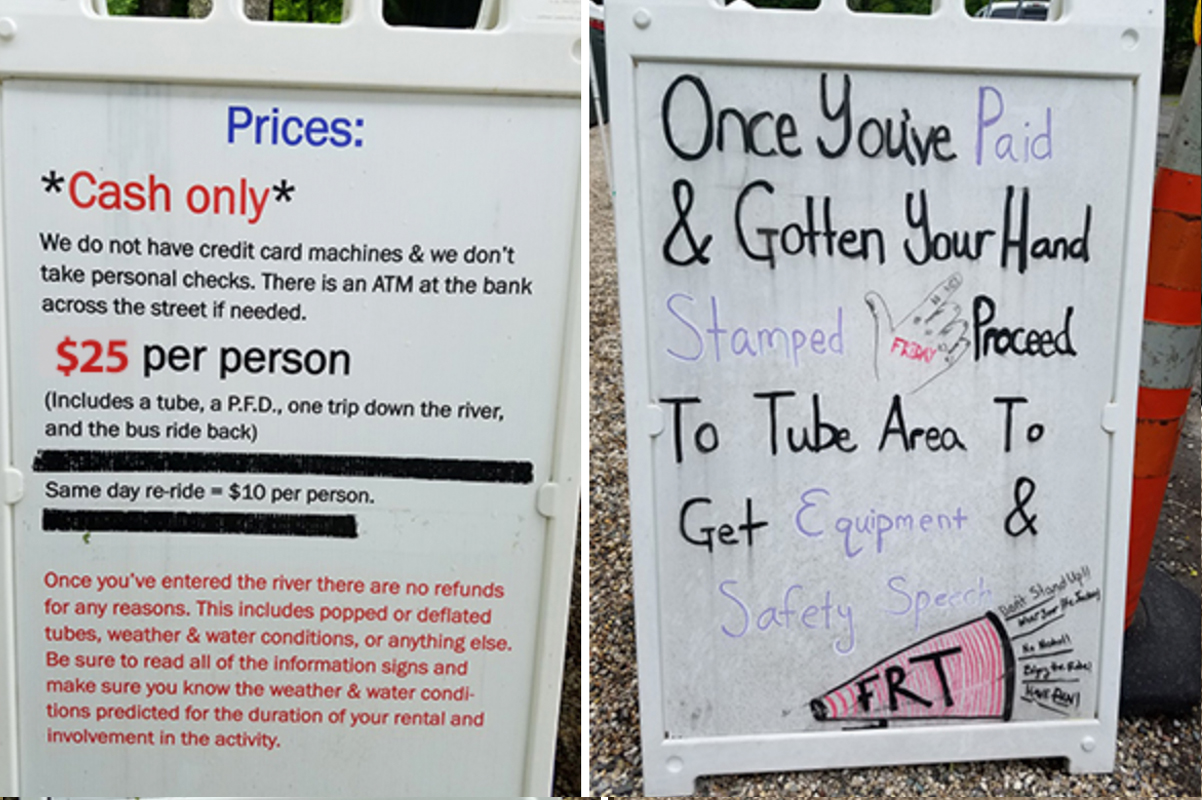 Prices:
*Cash only*
We do not have credit card machines & we don't
take personal checks. There is an ATM at the bank
across the street if needed.
$25 per person
(Includes a tube, a P.F.D., one trip down the river,
and the bus ride back)
Same day re-ride = $10 per person.
Once you've entered the river there are no refunds
for any reasons. This includes popped or deflated
tubes, weather & water conditions, or anything else.
Be sure to read all of the information signs and
make sure you know the weather & water condi-
tions predicted for the duration of your rental and
involvement in the activity.
Once You've Paid
& Gotten Your Hand
Stamped FRIDAY Proceed
To Tube Area To
Get Equipment &
Safety Speech
Don't Stand Up!!
Wear Your Life Jacket
No Alcohol!
Enjoy the Ride!
HAVE FUN!
FRT